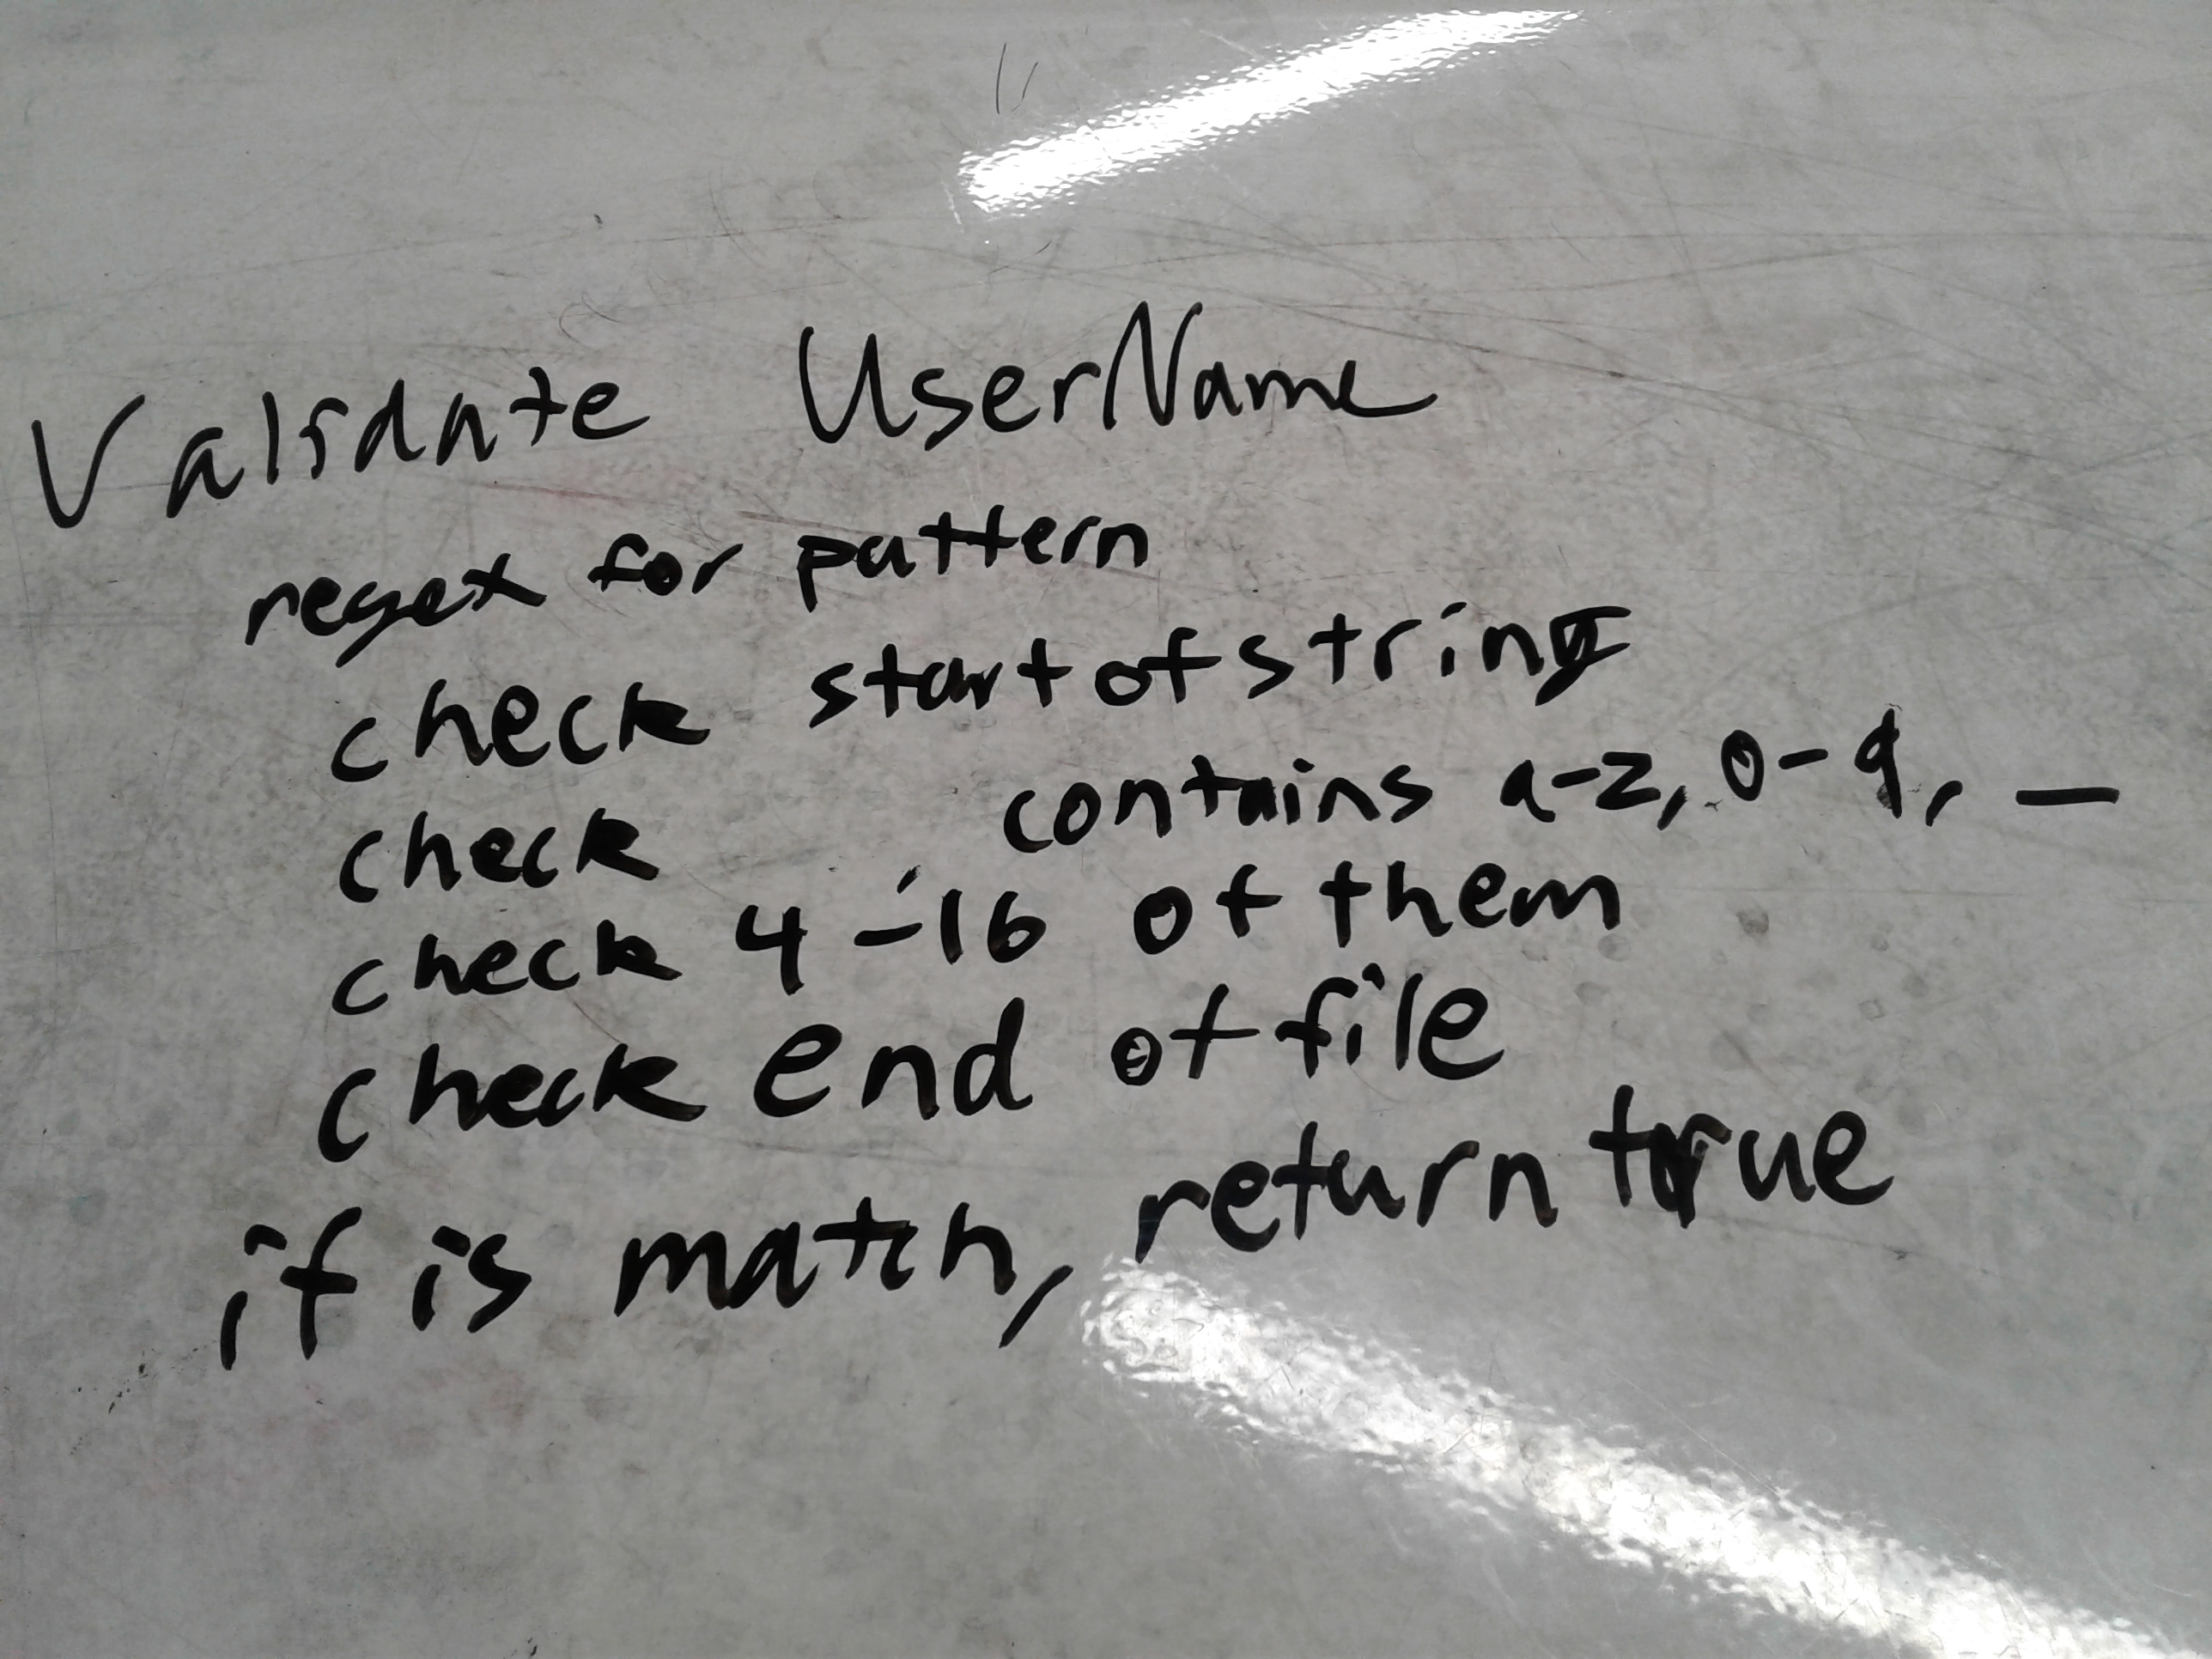 Validate UserName
regex for pattern
check start of string
check contains a-z, 0-9, _
check 4-16 of them
check end of file
if is match, return true